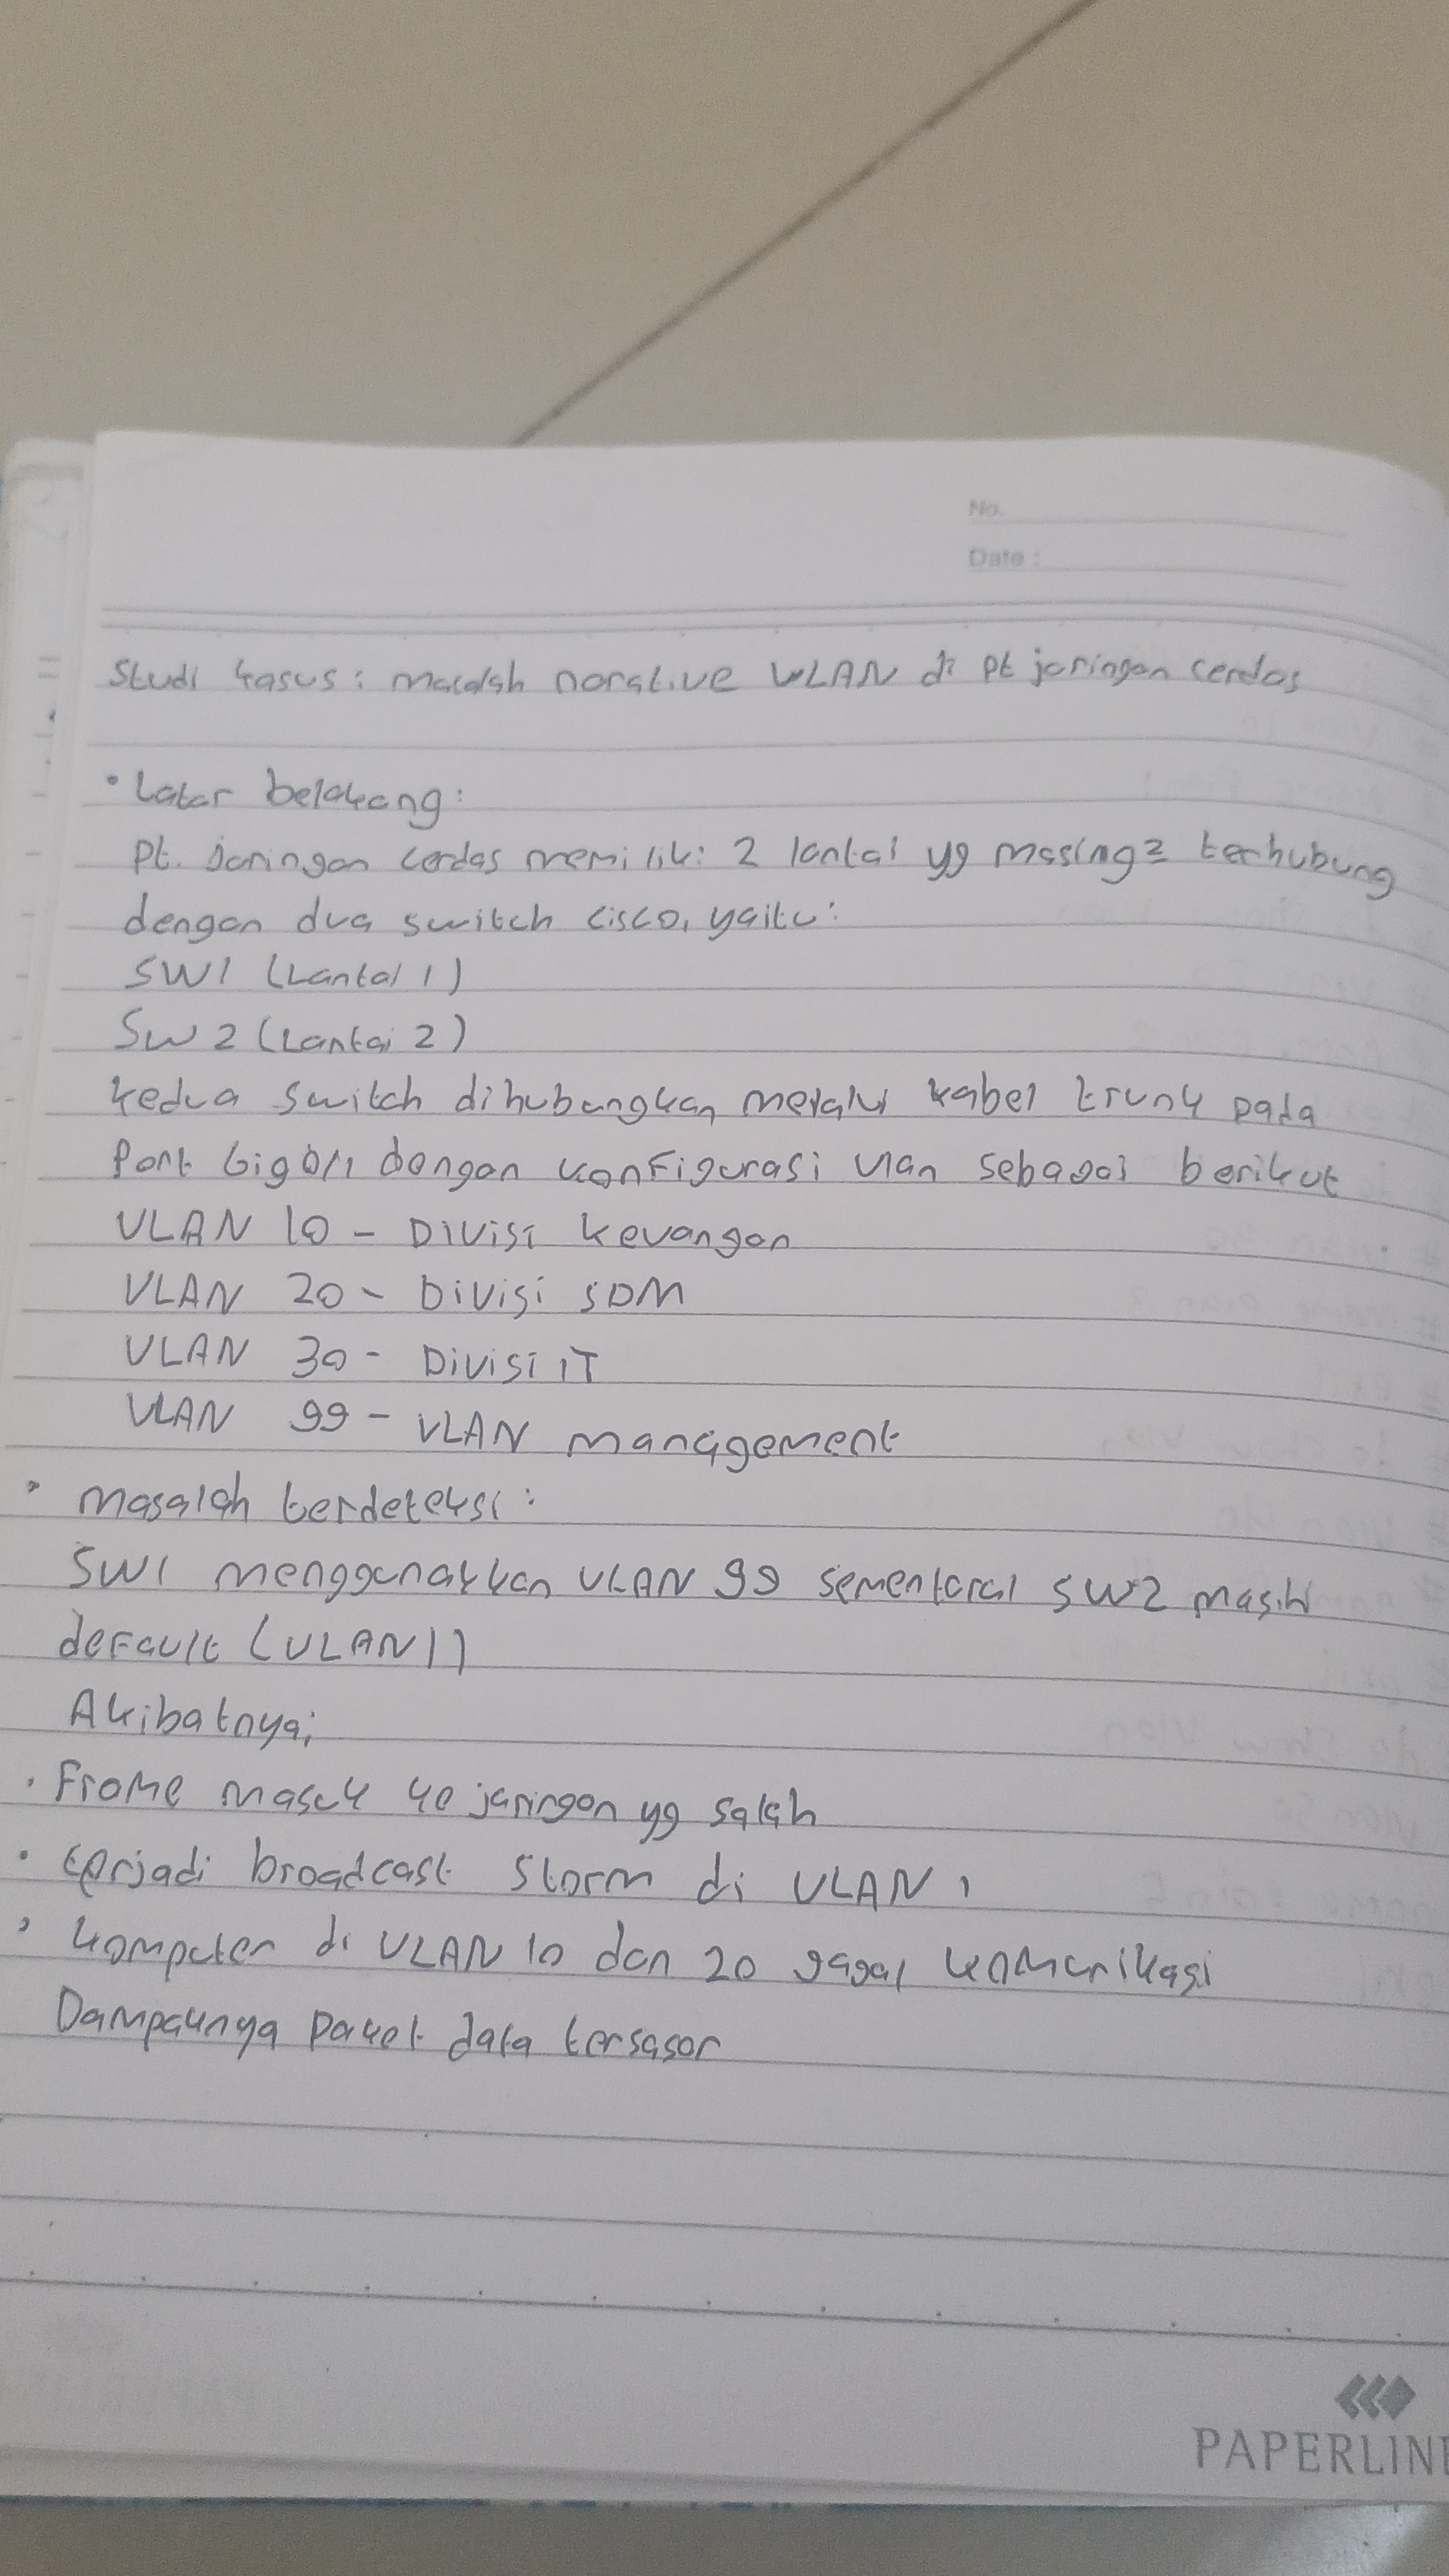 No.
Date :
Studi kasus : masalah norative VLAN di Pt jaringan cerdas
• Latar belakang :
Pt. Jaringan cerdas memiliki 2 lantai yg masing2 terhubung
dengan dua switch cisco, yaitu :
SW1 (Lantai 1)
SW2 (Lantai 2)
kedua switch dihubungkan melalui kabel trunk pada
Port Gig0/1 dengan konfigurasi vlan sebagai berikut
VLAN 10 - Divisi keuangan
VLAN 20 - Divisi SDM
VLAN 30 - Divisi IT
VLAN 99 - VLAN management
• masalah terdeteksi :
SW1 menggunakan VLAN 99 sementara SW2 masih
default (VLAN 1)
Akibatnya;
• Frame masuk ke jaringan yg salah
• terjadi broadcast storm di VLAN 1
• komputer di VLAN 10 dan 20 gagal komunikasi
Dampaknya paket data tersasar
PAPERLINE